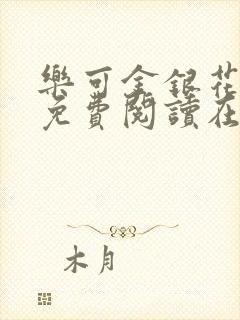 樂可金銀花
免費閱讀在
木月